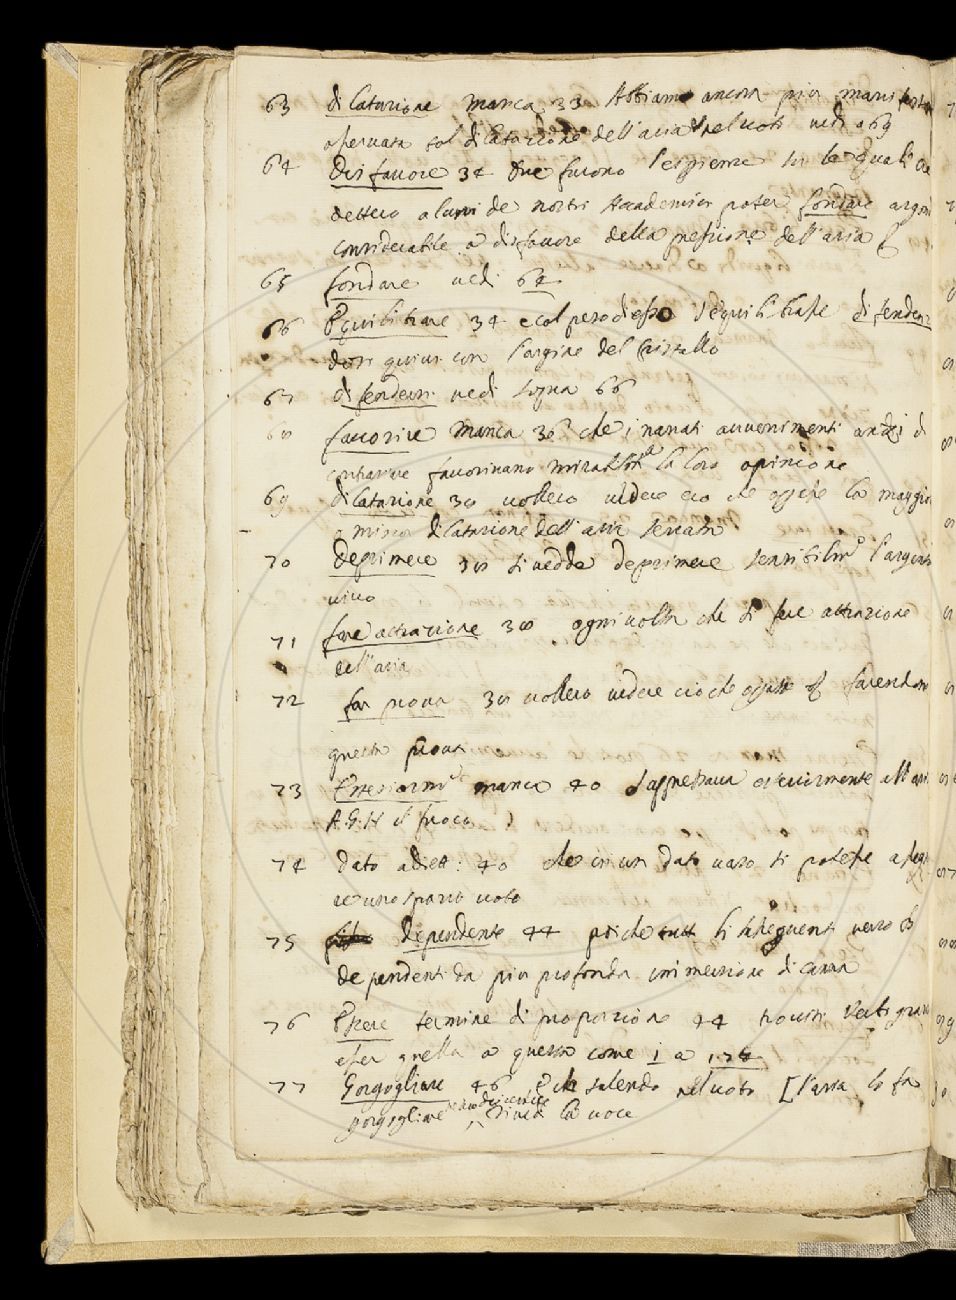 63 dilatazione manca 33 Abbiamo ancora più manifesta
osservata tal dilatazione dell'aria nel voto vedi a 69
64 disfavore 34 due furono l'esperienze su le quali cre
dettero alcuni de nostri Accademici poter fondare argom
considerabile a disfavore della pressione dell'aria
65 fondare vedi 64
66 Equilibrare 34 e col peso d'esso s'equilibrasse difendend
dosi quivi con l'argine del Cristallo
67 difendersi vedi sopra 66
68 favorire manca 36 che i narrati avvenimenti anzi di
contrariare favorivano mirabilmte la loro opinione
69 dilatazione 38 vollero vedere ciò che operasse la maggior
o minor dilatazione dell'aria serrata
70 deprimere 38 si vedde deprimere sensibilmo l'argento
vivo
71 fare attrazione 38 ogni volta che si fece attrazione
dell'aria
72 far prova 38 vollero vedere ciò che facendosi
questa prova
73 Esteriormte manca 40 s'appressava esteriormente all'aria
A.G.H il fuoco
74 dato adiett: 40 che in un dato vaso si potesse
re uno spazio voto
75 dipendente 44 poiche susseguenti verso B
dependenti da più profonda immersione di canna
76 Essere termine di proporzione 44 trovisi
esser quella a questa come 1 a 1.78
77 Gorgogliare 46 E che salendo nel voto [l'aria lo fa
gorgogliare la voce